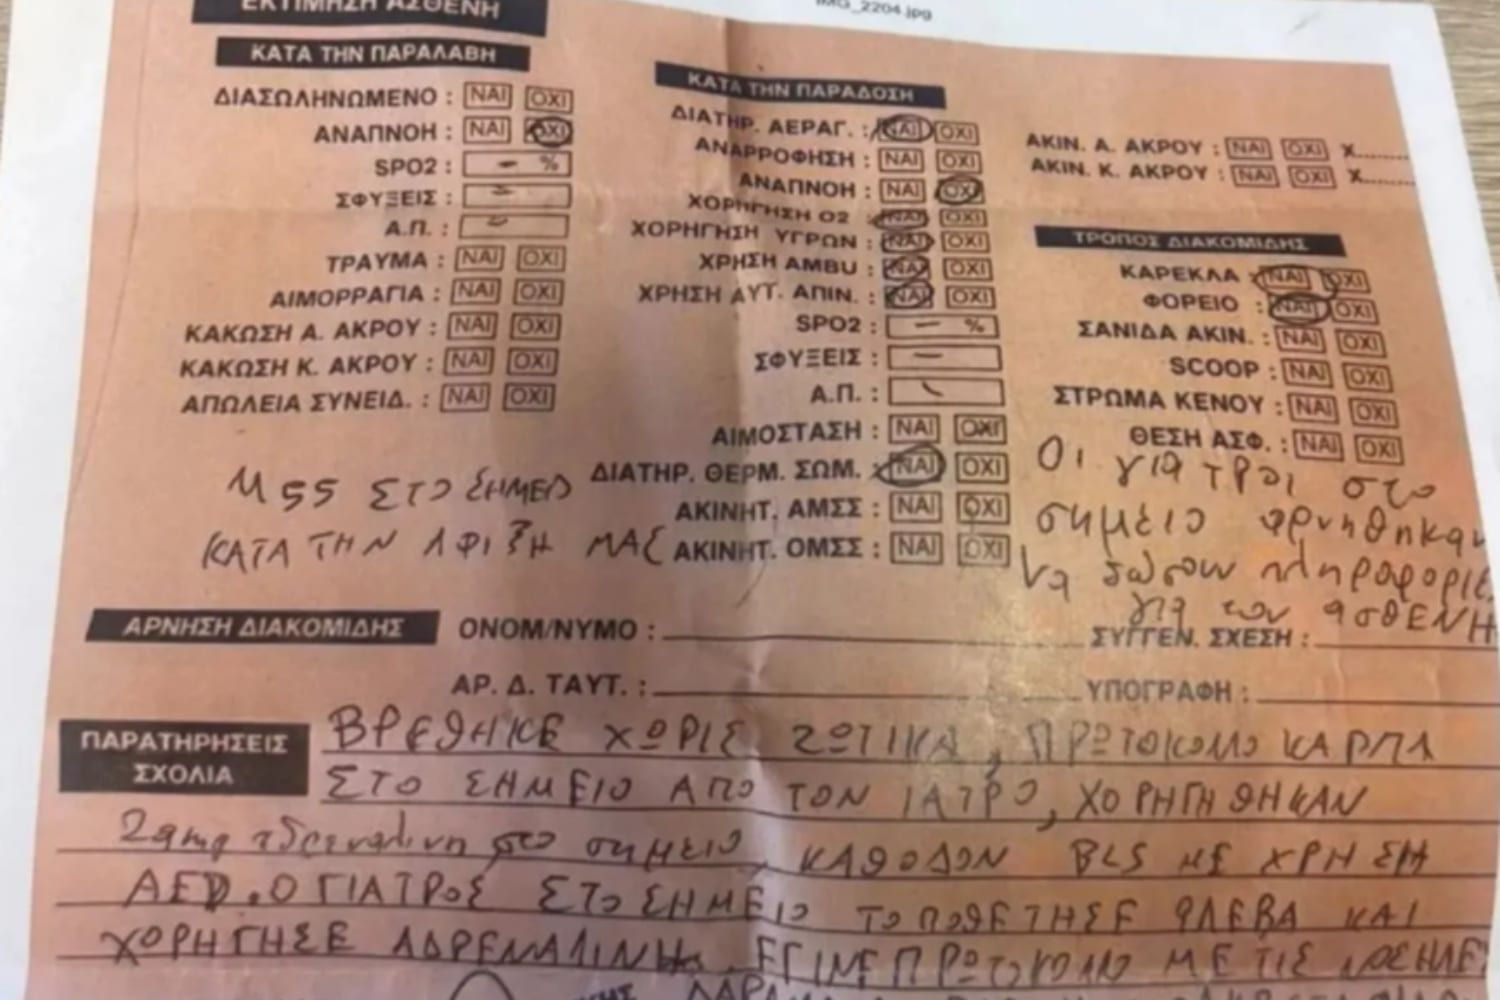 ΕΚΤΙΜΗΣΗ ΑΣΘΕΝΗ
IMG_2204.jpg
ΚΑΤΑ ΤΗΝ ΠΑΡΑΛΑΒΗ
ΔΙΑΣΩΛΗΝΩΜΕΝΟ : ΝΑΙ ΟΧΙ
ΑΝΑΠΝΟΗ : ΝΑΙ ΟΧΙ
SPO2 : - %
ΣΦΥΞΕΙΣ : -
Α.Π. : -
ΤΡΑΥΜΑ : ΝΑΙ ΟΧΙ
ΑΙΜΟΡΡΑΓΙΑ : ΝΑΙ ΟΧΙ
ΚΑΚΩΣΗ Α. ΑΚΡΟΥ : ΝΑΙ ΟΧΙ
ΚΑΚΩΣΗ Κ. ΑΚΡΟΥ : ΝΑΙ ΟΧΙ
ΑΠΩΛΕΙΑ ΣΥΝΕΙΔ. : ΝΑΙ ΟΧΙ
Μ55 ΣΤΟ ΣΗΜΕΙΟ
ΚΑΤΑ ΤΗΝ ΑΦΙΞΗ ΜΑΣ
ΚΑΤΑ ΤΗΝ ΠΑΡΑΔΟΣΗ
ΔΙΑΤΗΡ. ΑΕΡΑΓ. : ΝΑΙ ΟΧΙ
ΑΝΑΡΡΟΦΗΣΗ : ΝΑΙ ΟΧΙ
ΑΝΑΠΝΟΗ : ΝΑΙ ΟΧΙ
ΧΟΡΗΓΗΣΗ Ο2 : ΝΑΙ ΟΧΙ
ΧΟΡΗΓΗΣΗ ΥΓΡΩΝ : ΝΑΙ ΟΧΙ
ΧΡΗΣΗ AMBU : ΝΑΙ ΟΧΙ
ΧΡΗΣΗ ΑΥΤ. ΑΠΙΝ. : ΝΑΙ ΟΧΙ
SPO2 : - %
ΣΦΥΞΕΙΣ : -
Α.Π. : -
ΑΙΜΟΣΤΑΣΗ : ΝΑΙ ΟΧΙ
ΔΙΑΤΗΡ. ΘΕΡΜ. ΣΩΜ. : ΝΑΙ ΟΧΙ
ΑΚΙΝΗΤ. ΑΜΣΣ : ΝΑΙ ΟΧΙ
ΑΚΙΝΗΤ. ΟΜΣΣ : ΝΑΙ ΟΧΙ
ΑΚΙΝ. Α. ΑΚΡΟΥ : ΝΑΙ ΟΧΙ Χ........
ΑΚΙΝ. Κ. ΑΚΡΟΥ : ΝΑΙ ΟΧΙ Χ........
ΤΡΟΠΟΣ ΔΙΑΚΟΜΙΔΗΣ
ΚΑΡΕΚΛΑ : ΝΑΙ ΟΧΙ
ΦΟΡΕΙΟ : ΝΑΙ ΟΧΙ
ΣΑΝΙΔΑ ΑΚΙΝ. : ΝΑΙ ΟΧΙ
SCOOP : ΝΑΙ ΟΧΙ
ΣΤΡΩΜΑ ΚΕΝΟΥ : ΝΑΙ ΟΧΙ
ΘΕΣΗ ΑΣΦ. : ΝΑΙ ΟΧΙ
Οι γιατροι στο
σημείο αρνηθηκαν
να δώσουν πληροφορίες
για τον ασθΕΝΗ
ΑΡΝΗΣΗ ΔΙΑΚΟΜΙΔΗΣ ΟΝΟΜ/ΝΥΜΟ : ΣΥΓΓΕΝ. ΣΧΕΣΗ :
ΑΡ. Δ. ΤΑΥΤ. : ΥΠΟΓΡΑΦΗ :
ΠΑΡΑΤΗΡΗΣΕΙΣ
ΣΧΟΛΙΑ
ΒΡΕΘΗΚΕ ΧΩΡΙΣ ΖΩΤΙΚΑ, ΠΡΩΤΟΚΟΛΛΟ ΚΑΡΠΑ
ΣΤΟ ΣΗΜΕΙΟ ΑΠΟ ΤΟΝ ΙΑΤΡΟ, ΧΟΡΗΓΗΘΗΚΑΝ
2amp αδρεναλινη στο σημειο, ΚΑΘΟΔΟΝ BLS ΜΕ ΧΡΗΣΗ
AED. Ο ΓΙΑΤΡΟΣ ΣΤΟ ΣΗΜΕΙΟ ΤΟΠΟΘΕΤΗΣΕ ΦΛΕΒΑ ΚΑΙ
ΧΟΡΗΓΗΣΕ ΑΔΡΕΝΑΛΙΝΗ. ΕΓΙΝΕ ΠΡΩΤΟΚΟΛΛΟ ΜΕ ΤΙΣ